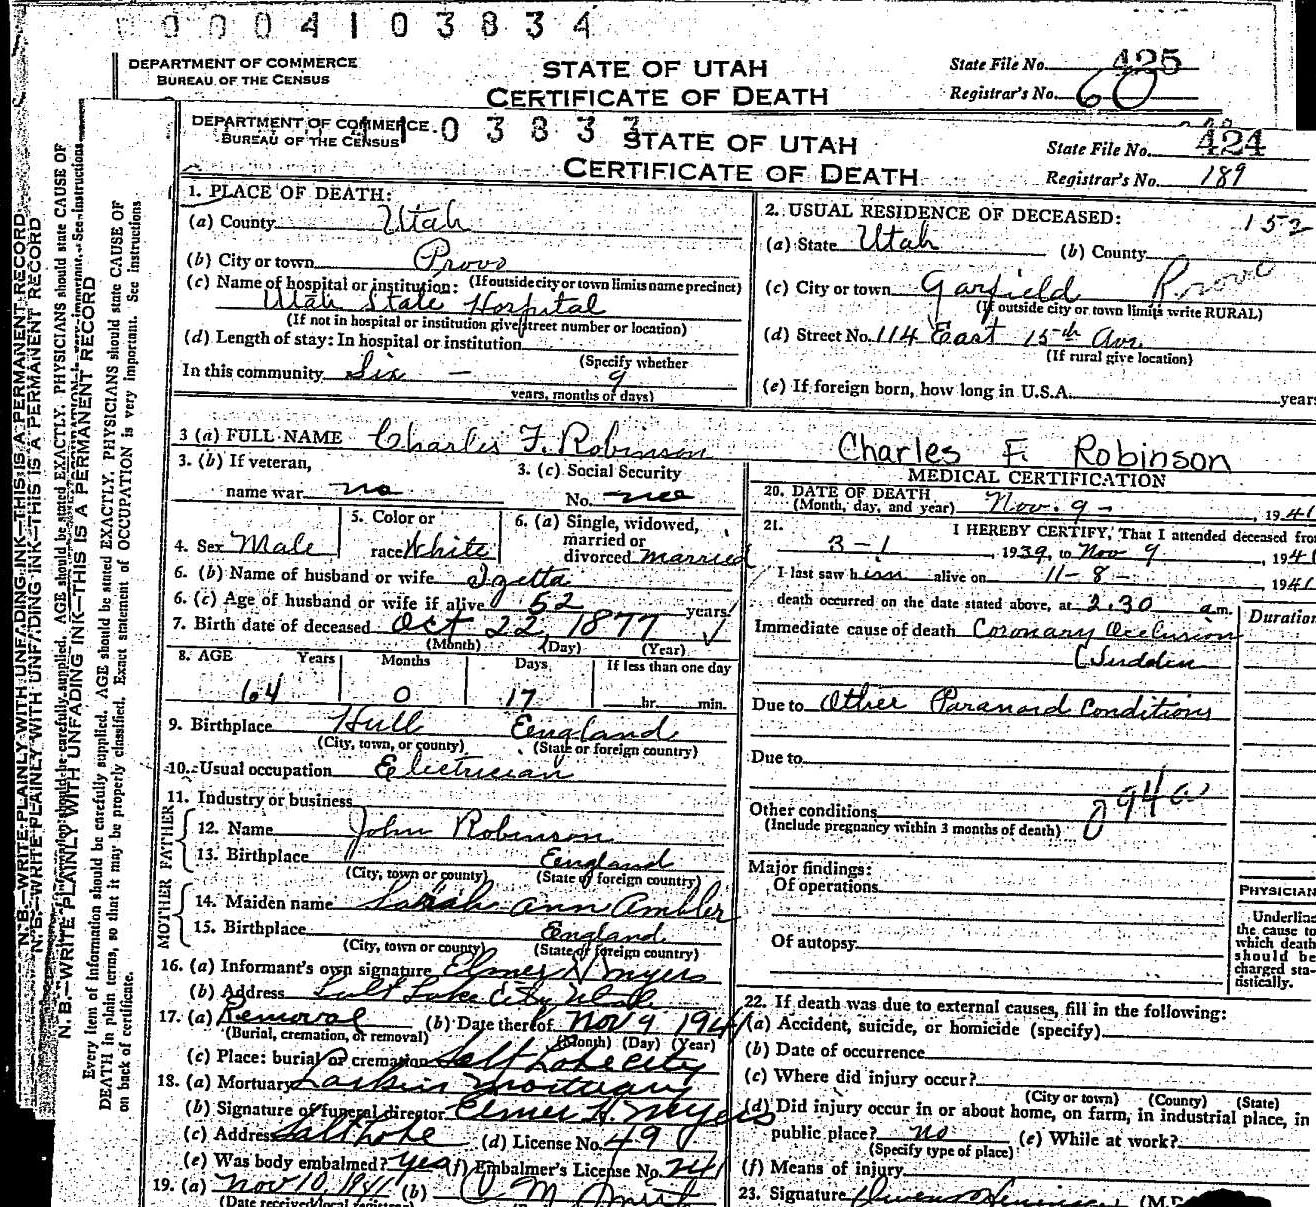 0004103834
DEPARTMENT OF COMMERCE
BUREAU OF THE CENSUS
STATE OF UTAH
CERTIFICATE OF DEATH
State File No. 425
Registrar's No. 60
DEPARTMENT OF COMMERCE
BUREAU OF THE CENSUS
03833
STATE OF UTAH
CERTIFICATE OF DEATH
State File No. 424
Registrar's No. 189
1. PLACE OF DEATH:
(a) County Utah
(b) City or town Provo
(c) Name of hospital or institution: (If outside city or town limits name precinct)
Utah State Hospital
(If not in hospital or institution give street number or location)
(d) Length of stay: In hospital or institution
(Specify whether
In this community Six - 9
years, months or days)
2. USUAL RESIDENCE OF DECEASED: 152
(a) State Utah (b) County
(c) City or town Garfield Provo
(If outside city or town limits write RURAL)
(d) Street No. 114 East 15th Ave
(If rural give location)
(e) If foreign born, how long in U.S.A. years
3 (a) FULL NAME Charles F. Robinson
Charles F. Robinson
3. (b) If veteran,
name war no
3. (c) Social Security
No.
4. Sex Male
5. Color or
race White
6. (a) Single, widowed,
married or
divorced married
6. (b) Name of husband or wife Igetta
6. (c) Age of husband or wife if alive 52 years
7. Birth date of deceased Oct 22 1877 ✓
(Month) (Day) (Year)
8. AGE Years Months Days If less than one day
64 0 17 hr. min.
9. Birthplace Hull England
(City, town, or county) (State or foreign country)
10. Usual occupation Electrician
11. Industry or business
FATHER
12. Name John Robinson
13. Birthplace England
(City, town or county) (State of foreign country)
MOTHER
14. Maiden name Sarah Ann Ambler
15. Birthplace England
(City, town or county) (State of foreign country)
16. (a) Informant's own signature Elmer H Myers
(b) Address Salt Lake City Utah
17. (a) Removal (b) Date thereof Nov 9 1941
(Burial, cremation, or removal) (Month) (Day) (Year)
(c) Place: burial or cremation Salt Lake City
18. (a) Mortuary Larkin Mortuary
(b) Signature of funeral director Elmer H. Myers
(c) Address Salt Lake (d) License No. 49
(e) Was body embalmed? Yes (f) Embalmer's License No. 241
19. (a) Nov 10, 1941 (b)
(Date received local registrar)
MEDICAL CERTIFICATION
20. DATE OF DEATH
(Month, day, and year) Nov. 9 -, 1941
21. I HEREBY CERTIFY, That I attended deceased from
3-1, 1939, to Nov 9, 1941
I last saw him alive on 11-8-1941
death occurred on the date stated above, at 2:30 a.m.
Duration
Immediate cause of death Coronary Occlusion
(Sudden
Due to Other Paranoid Conditions
Due to
94 a
Other conditions
(Include pregnancy within 3 months of death)
Major findings:
Of operations
Of autopsy
PHYSICIAN
Underline
the cause to
which death
should be
charged sta-
tistically.
22. If death was due to external causes, fill in the following:
(a) Accident, suicide, or homicide (specify)
(b) Date of occurrence
(c) Where did injury occur?
(City or town) (County) (State)
(d) Did injury occur in or about home, on farm, in industrial place, in
public place? no (e) While at work?
(Specify type of place)
(f) Means of injury
23. Signature (M.D.
N. B.—WRITE PLAINLY WITH UNFADING INK—THIS IS A PERMANENT RECORD
N. B.—WRITE PLAINLY WITH UNFADING INK—THIS IS A PERMANENT RECORD
N. B.—WRITE PLAINLY WITH UNFADING INK—THIS IS A PERMANENT RECORD
Every item of information should be carefully supplied. AGE should be stated EXACTLY. PHYSICIANS should state CAUSE OF
DEATH in plain terms, so that it may be properly classified. Exact statement of OCCUPATION is very important. See instructions
on back of certificate.